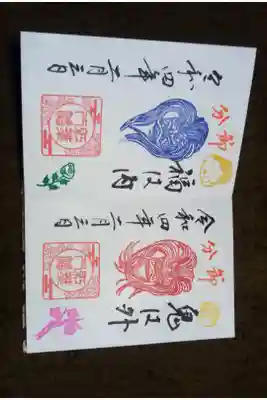 節分
福は内
令和四年二月三日
節分
鬼は外
令和四年二月三日